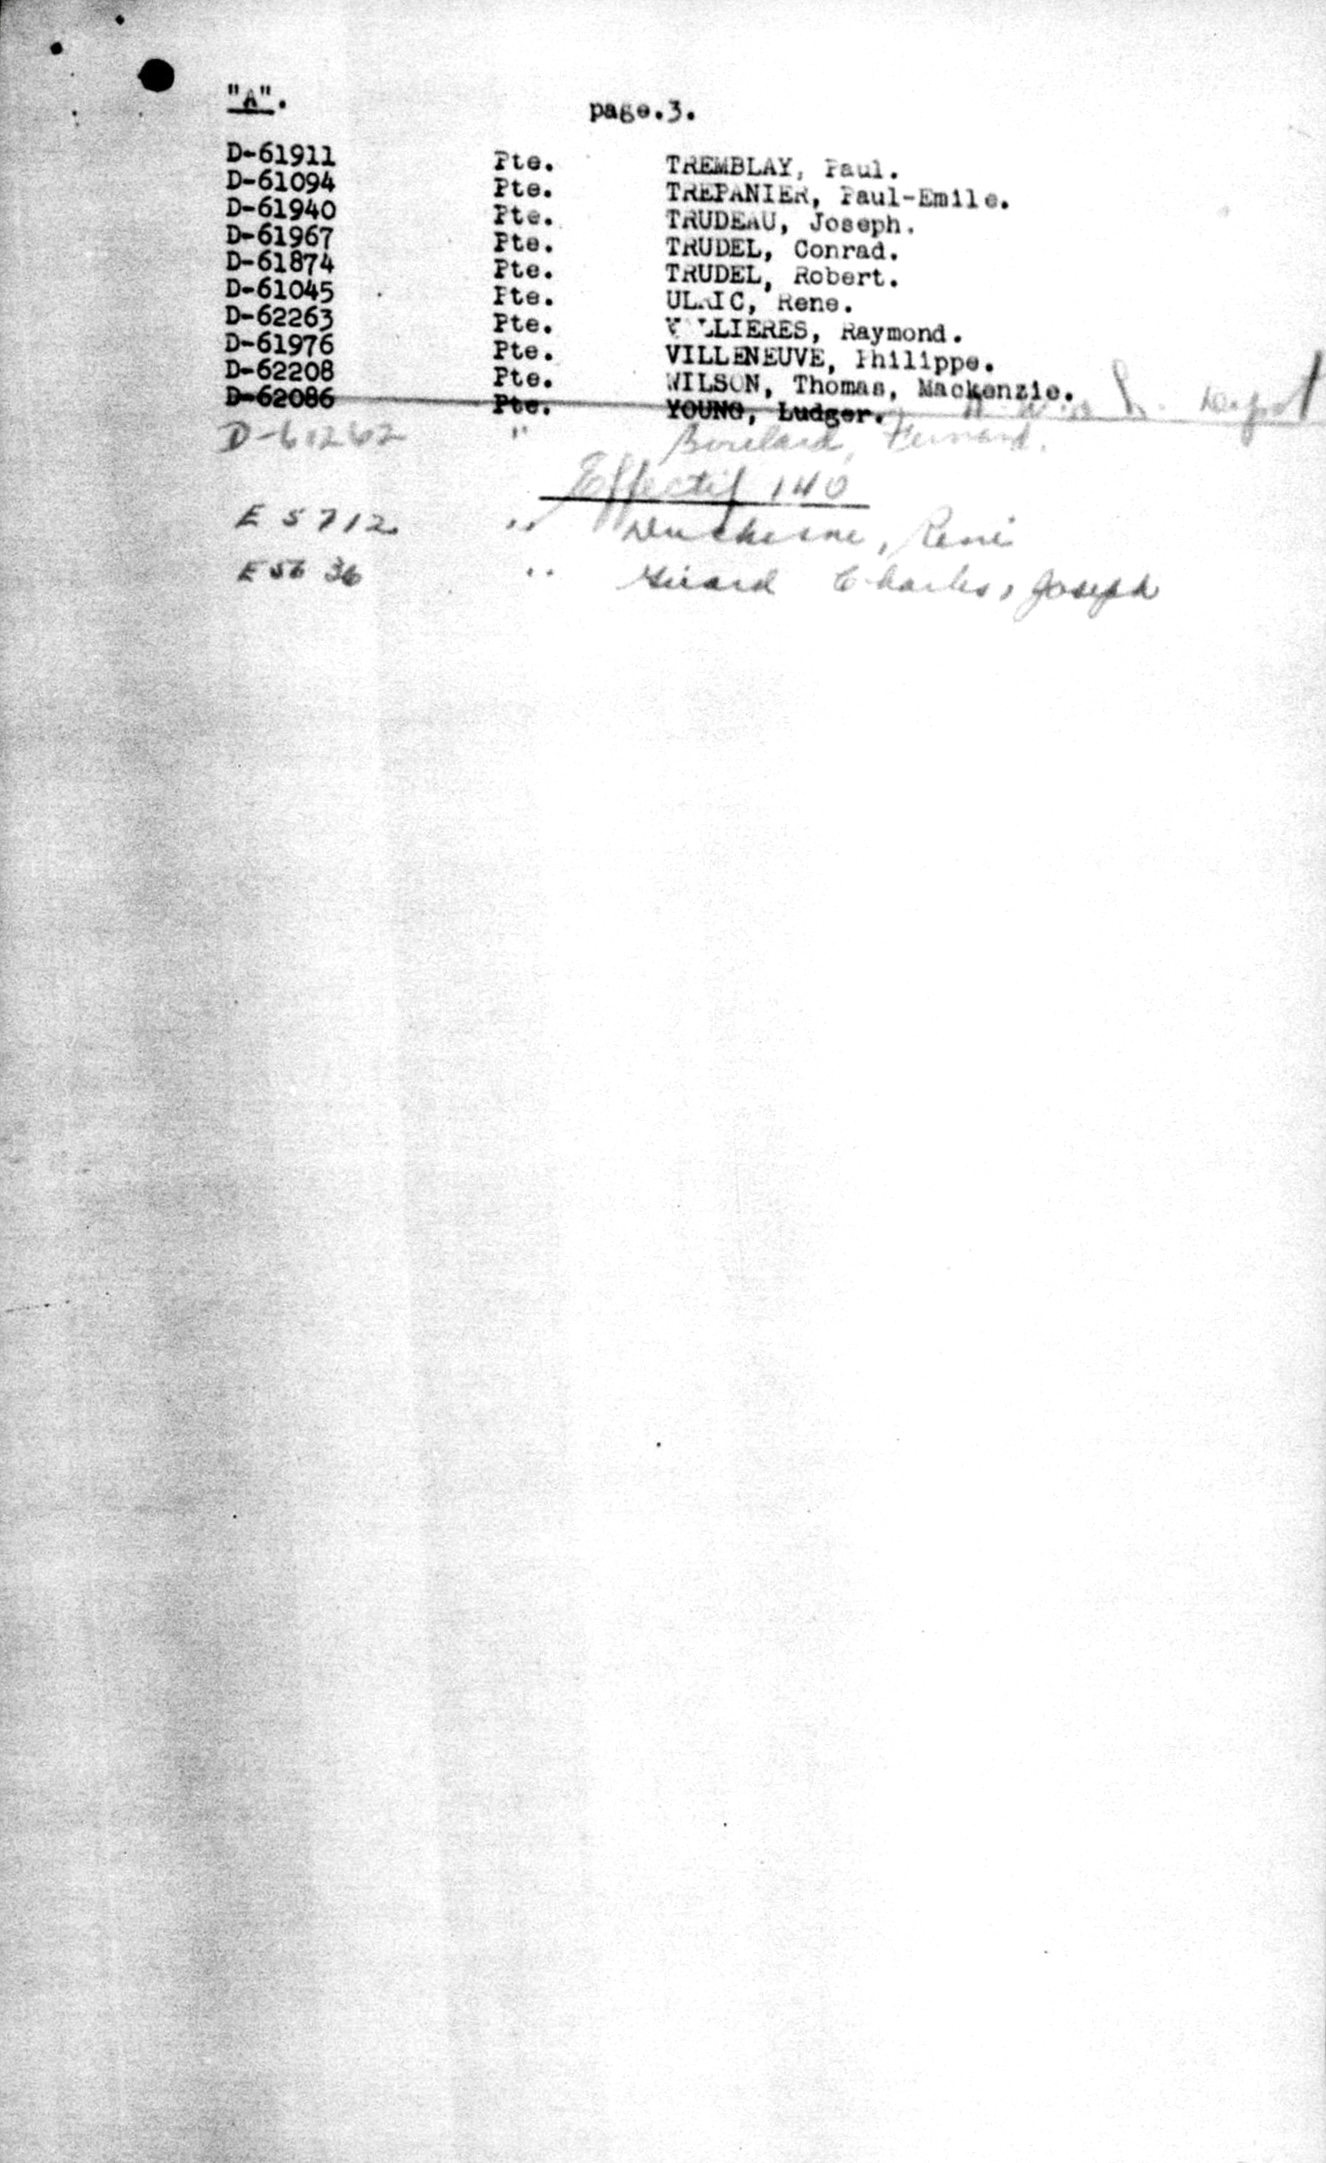 "A". page.3.
D-61911 Pte. TREMBLAY, Paul.
D-61094 Pte. TREPANIER, Paul-Emile.
D-61940 Pte. TRUDEAU, Joseph.
D-61967 Pte. TRUDEL, Conrad.
D-61874 Pte. TRUDEL, Robert.
D-61045 Pte. ULRIC, Rene.
D-62263 Pte. Raymond.
D-61976 Pte. VILLENEUVE, Philippe.
D-62208 Pte. WILSON, Thomas, Mackenzie.
D-62086 Pte. YOUNG, Ludger. Depot
D-61262 " Fernand.
Effectif 140
E 5712 " Duchesne, René
E 5636 " Girard Charles, Joseph